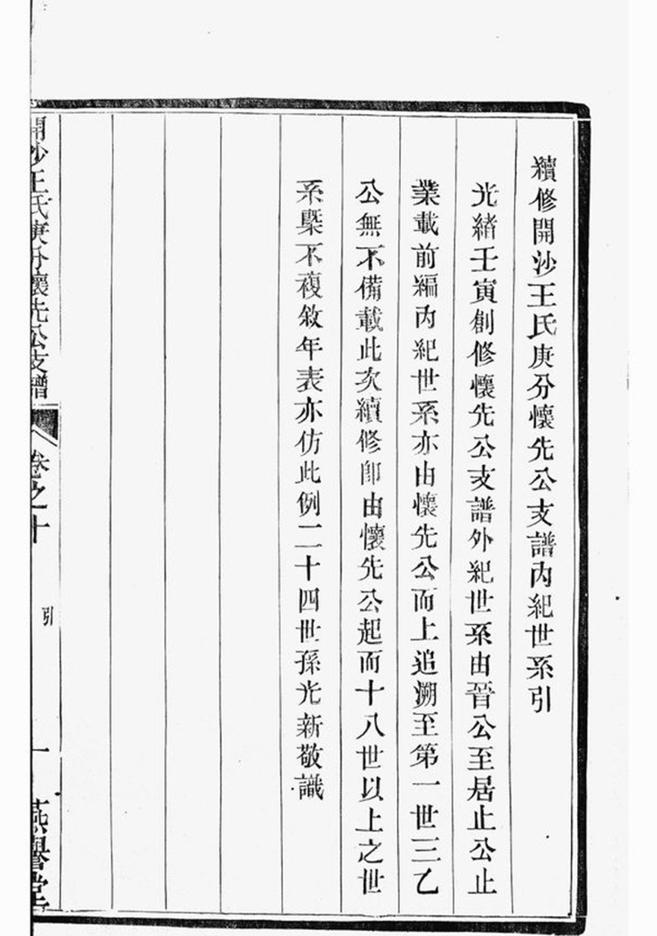 續修開沙王氏庚分懷先公支譜內紀世系引
光緒壬寅創修懷先公支譜外紀世系由晉公至居止公止
業載前編內紀世系亦由懷先公而上追溯至第一世三乙
公無不備載此次續修卽由懷先公起而十八世以上之世
系槩不複敘年表亦仿此例二十四世孫光新敬識
開沙王氏庚分懷先公支譜
卷之十
引
一
燕譽堂